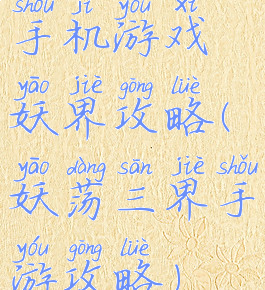 shǒu jī yóu xì
手机游戏
yāo jiè gōng lüè
妖界攻略(
yāo dàng sān jiè shǒu
妖荡三界手
yóu gōng lüè
游攻略)